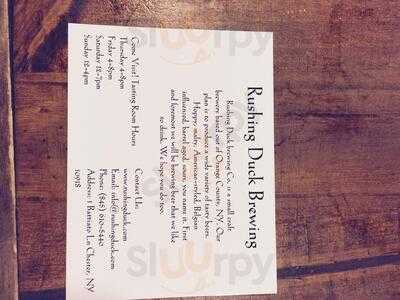 Rushing Duck Brewing
Rushing Duck brewing Co. is a small craft
brewery based out of Orange County, NY. Our
plan is to produce a wide variety of tasty beers.
Hoppy, malty, American-styled, Belgian
influenced, barrel aged, sours, you name it. First
and foremost we will be brewing beer that we like
to drink. We hope you do too.
Come Visit! Tasting Room Hours
Thursday 4-8pm
Friday 4-8pm
Saturday 12-7pm
Sunday 12-4pm
Contact Us:
www.rushingduck.com
Email: info@rushingduck.com
Phone: (845) 610-5440
Address: 1 Battiato Ln Chester, NY
10918
Slurrpy
Slurrpy